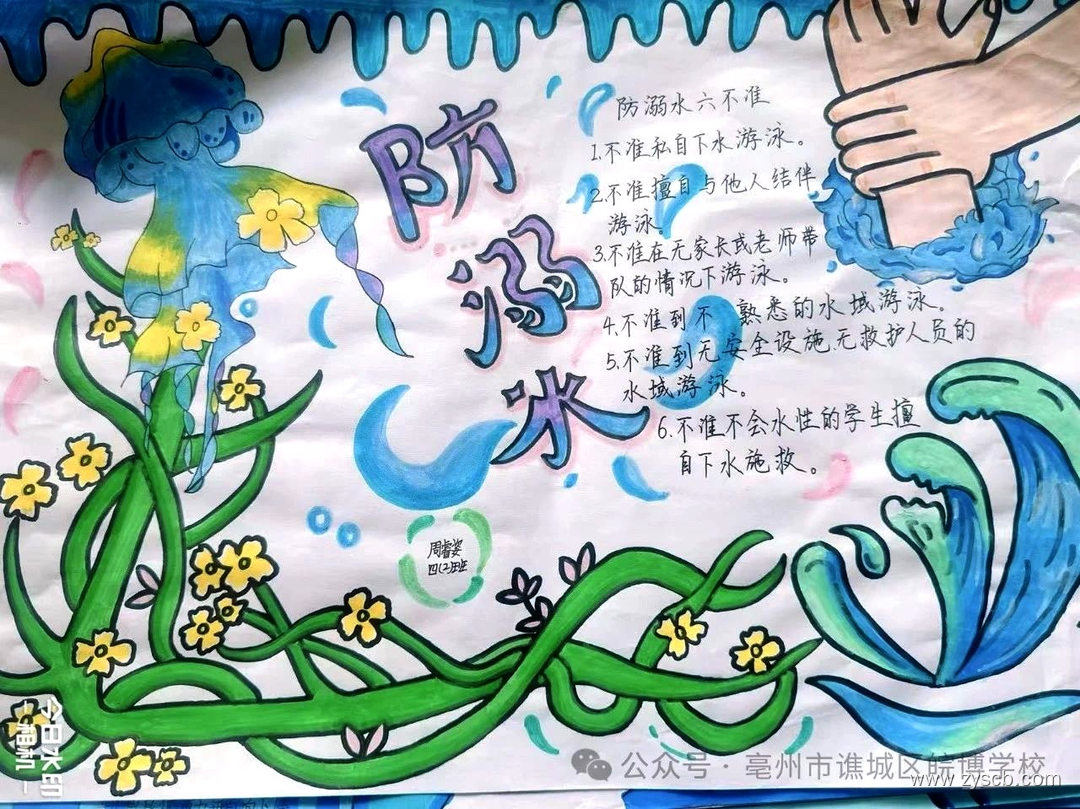 防溺水
防溺水六不准
1.不准私自下水游泳。
2.不准擅自与他人结伴
游泳
3.不准在无家长或老师带
队的情况下游泳。
4.不准到不 熟悉的水域游泳。
5.不准到无安全设施、无救护人员的
水域游泳。
6.不准不会水性的学生擅
自下水施救。
周睿姿
四(2)班
今日水印
-相机-
公众号·亳州市谯城区皖博学校
www.zyscb.com